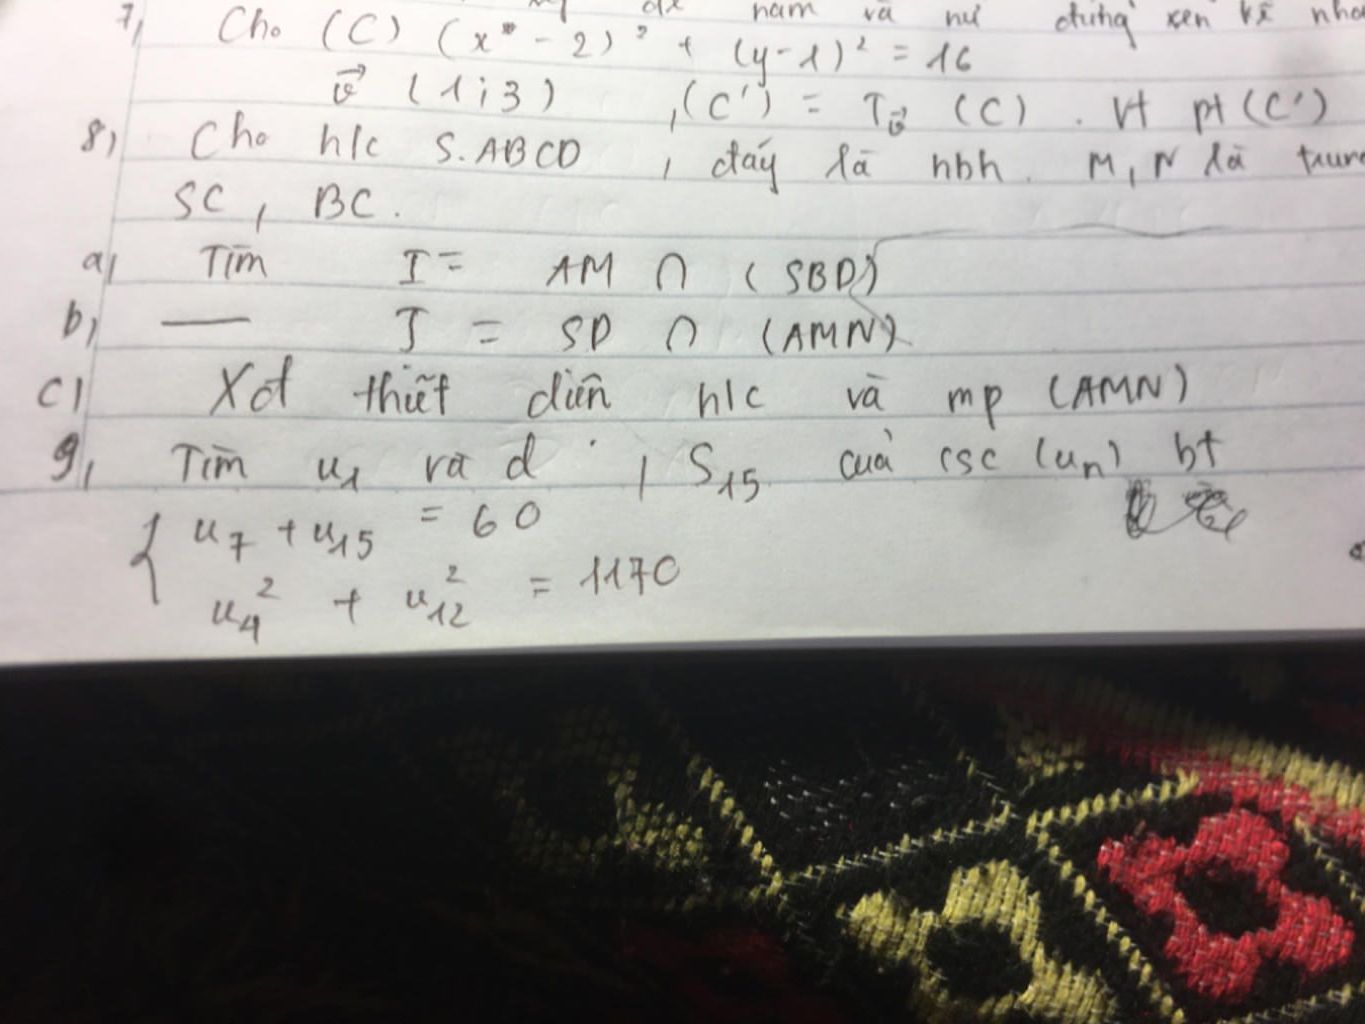 dx nam và nữ đứng xen kẽ
7, Cho (C) (x - 2)² + (y-1)² = 16
v⃗ (1;3) , (C') = T_v⃗ (C) . Vt pt (C')
8, Cho h/c S.ABCD , đáy là hbh. M, N là
SC, BC.
a, Tìm I = AM ∩ (SBD)
b, — J = SD ∩ (AMN)
c, Xđ thiết diện h/c và mp (AMN)
9, Tìm u₁ và d , S₁₅ của csc (uₙ) bt
{ u₇ + u₁₅ = 60
u₄² + u₁₂² = 1170